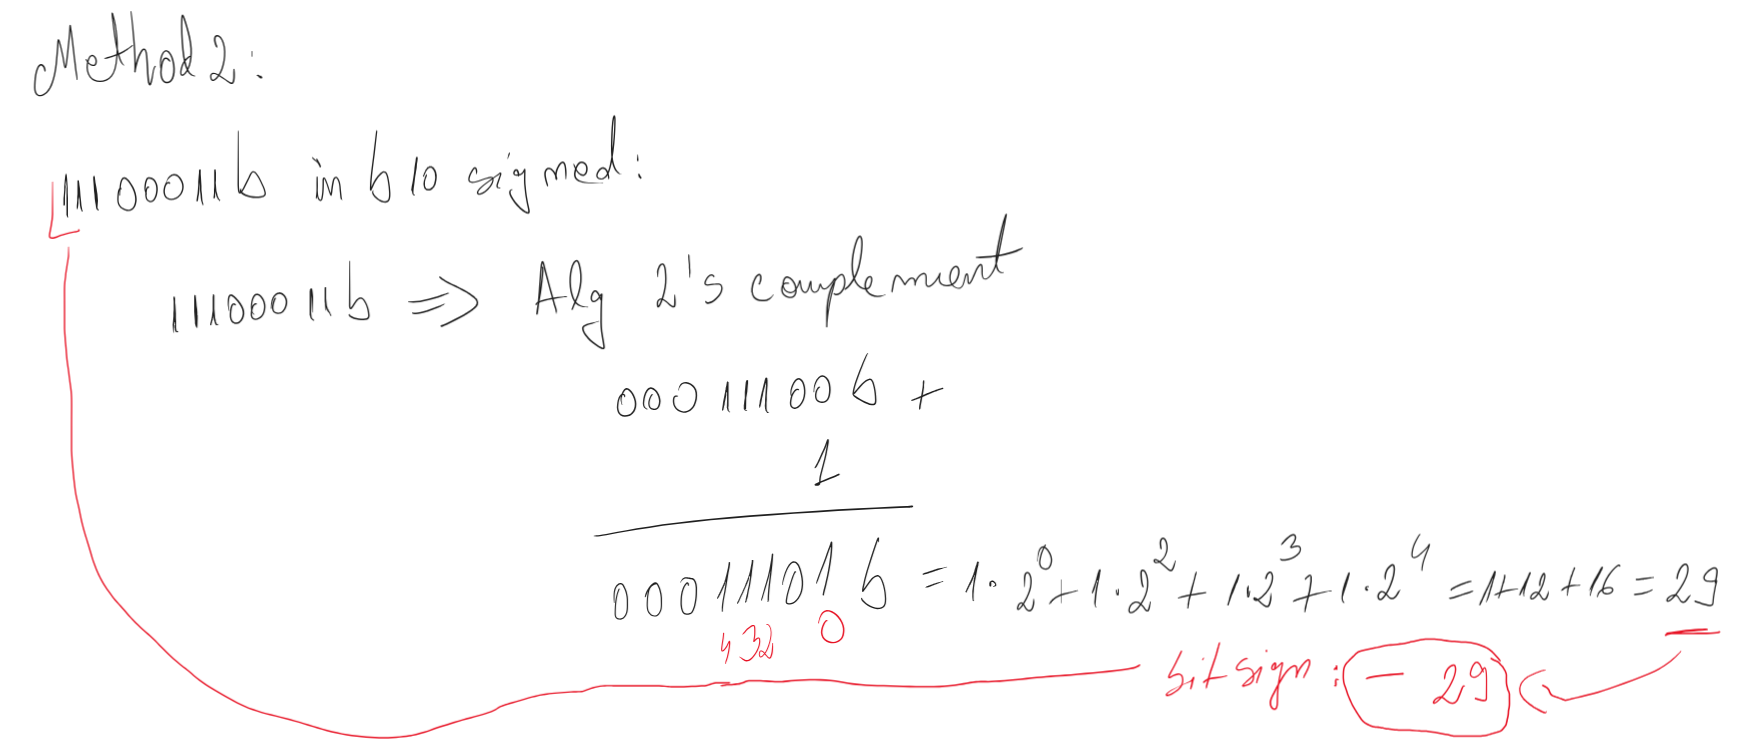 Method 2:
11100011b in b10 signed:
11100011b => Alg 2's complement
00011100b +
1
00011101b = 1·2^0+1·2^2+1·2^3+1·2^4 = 1+12+16 = 29
432 0
bit sign: - 29